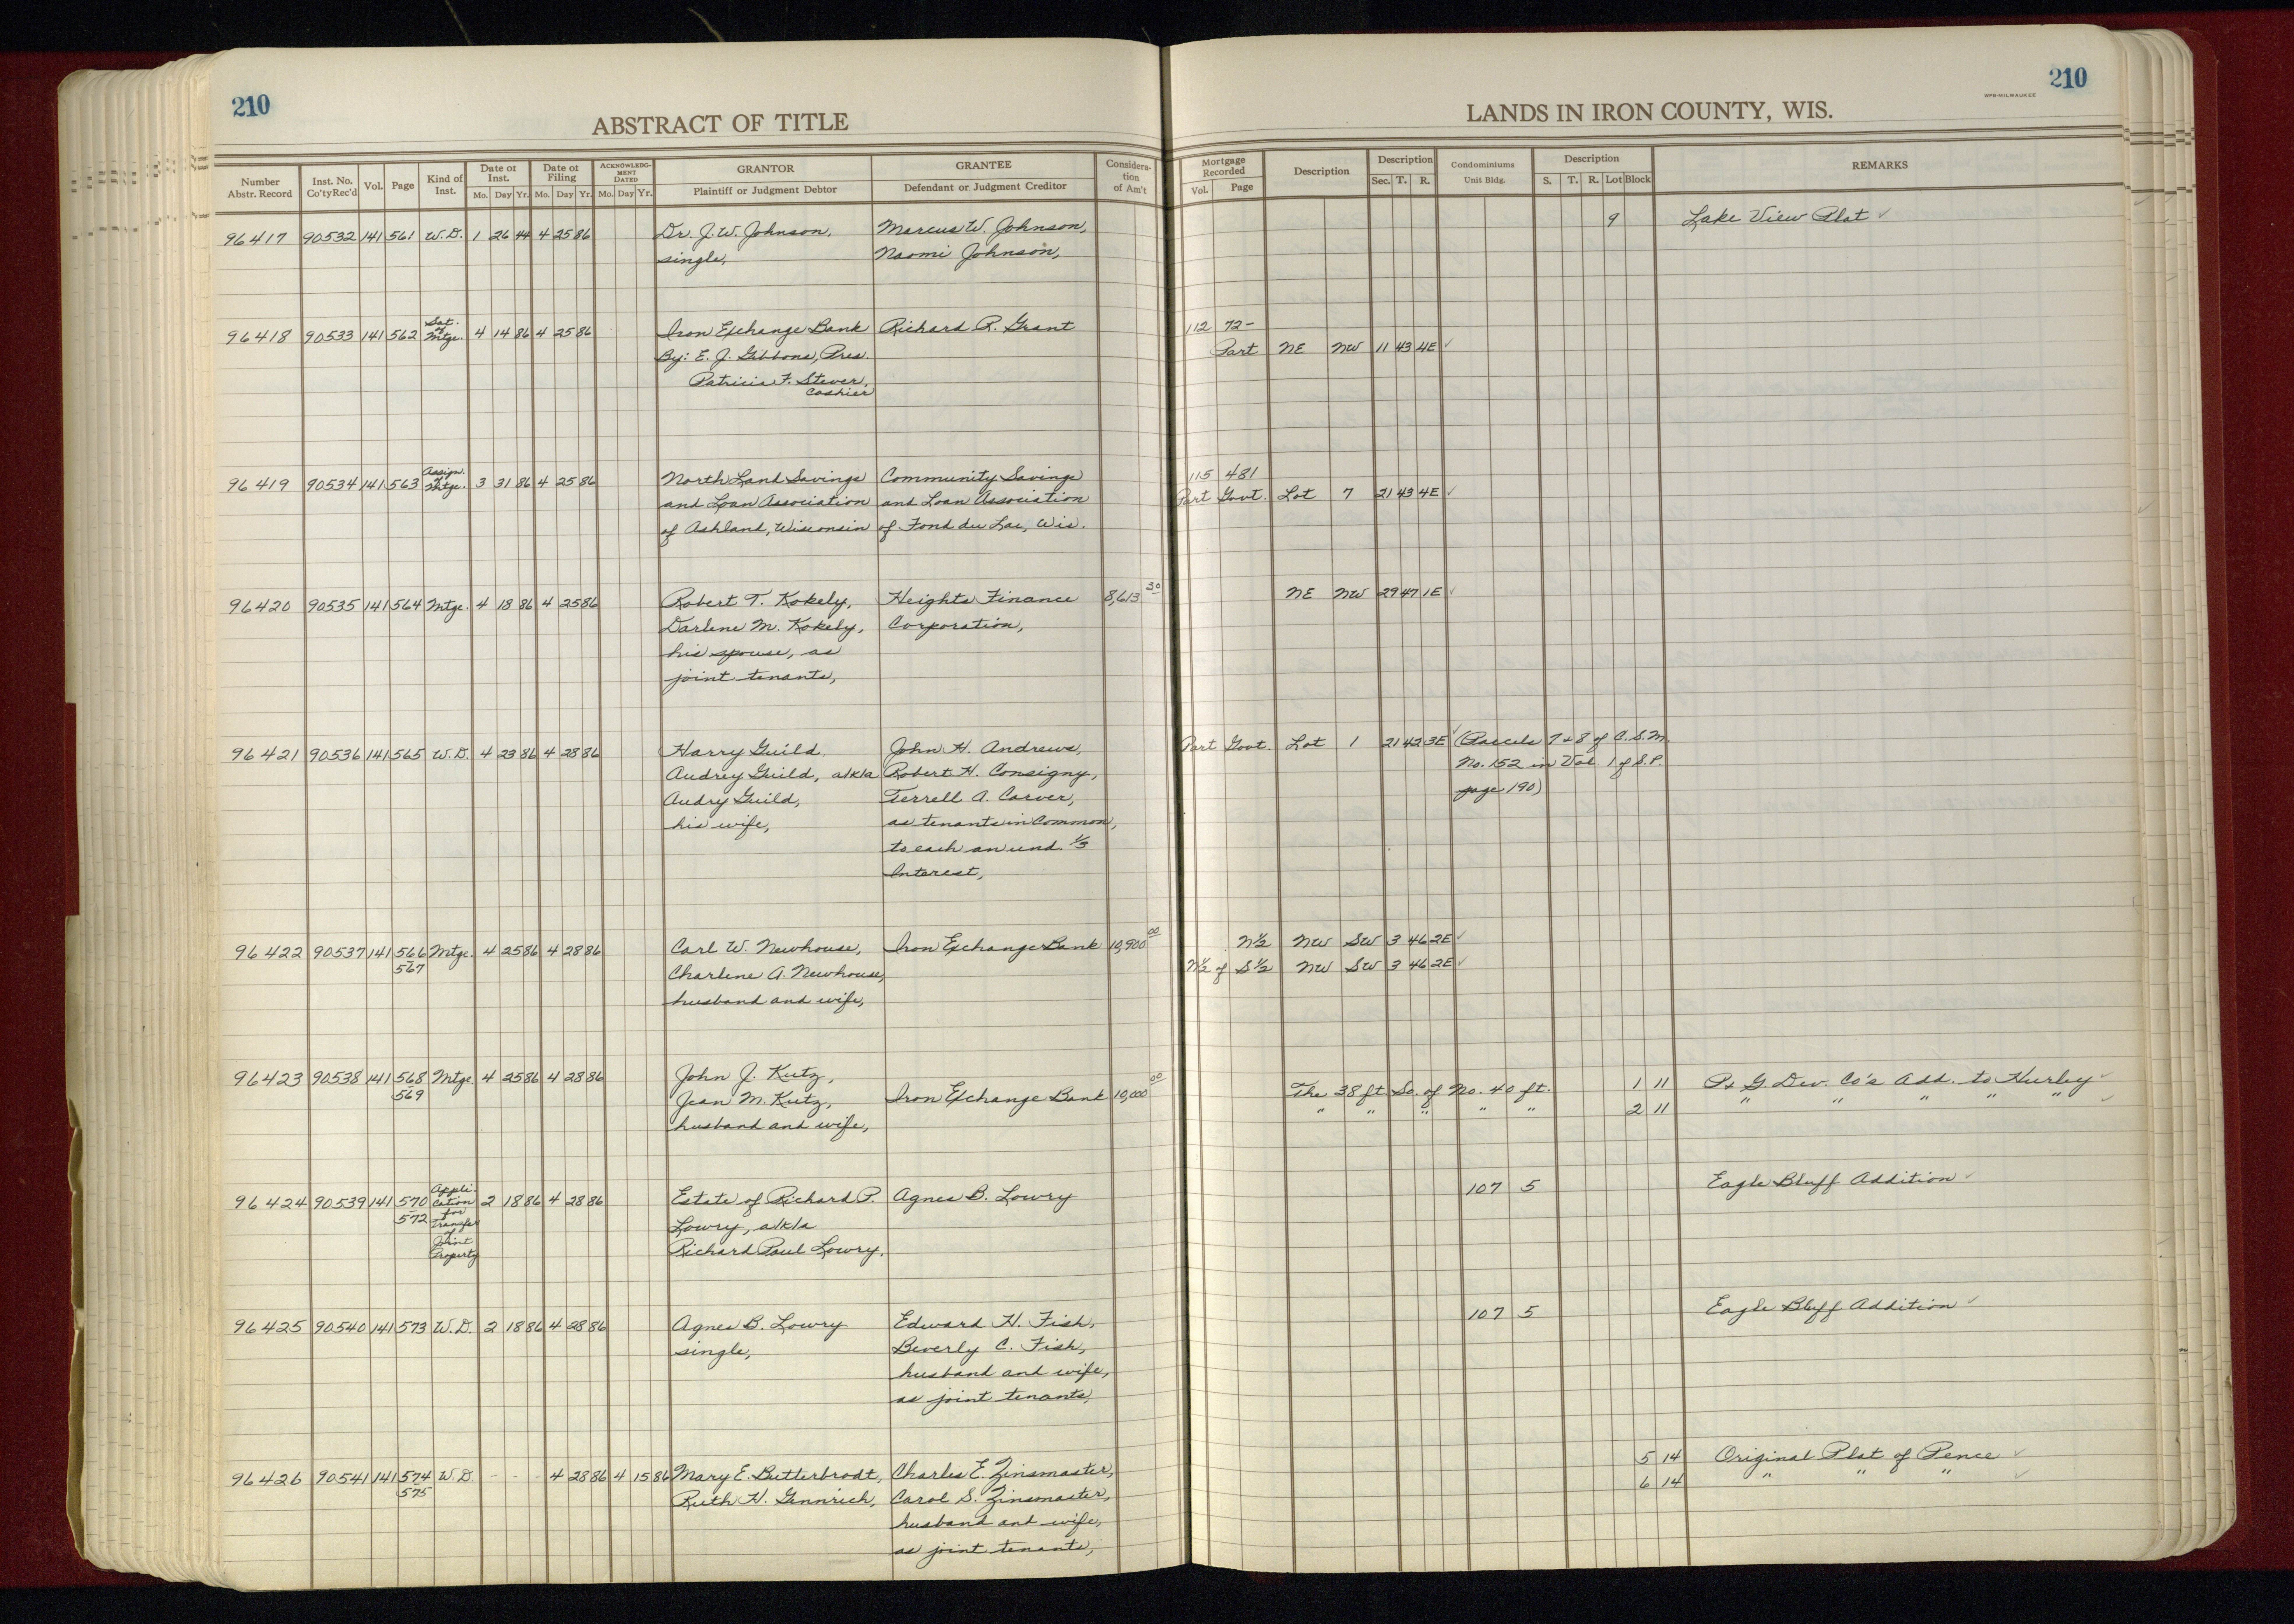 210
ABSTRACT OF TITLE
Number Abstr. Record | Inst. No. Co'ty Rec'd | Vol. | Page | Kind of Inst. | Date of Inst. Mo. Day Yr. | Date of Filing Mo. Day Yr. | ACKNOWLEDGMENT DATED Mo. Day Yr. | GRANTOR Plaintiff or Judgment Debtor | GRANTEE Defendant or Judgment Creditor | Consideration of Am't
96417 90532 141 561 W.D. 1 26 44 4 25 86 Dr. J. W. Johnson, Marcus W. Johnson,
single, Naomi Johnson,
96418 90533 141 562 Sat. of Mtge. 4 14 86 4 25 86 Iron Exchange Bank Richard R. Grant
By: E. J. Gibbons, Pres.
Patricia F. Stever,
Cashier
96419 90534 141 563 Assign. of Mtge. 3 31 86 4 25 86 North Land Savings Community Savings
and Loan Association and Loan Association
of Ashland, Wisconsin of Fond du Lac, Wis.
96420 90535 141 564 Mtge. 4 18 86 4 25 86 Robert T. Kokely, Heights Finance 8,613 30
Darlene M. Kokely, Corporation,
his spouse, as
joint tenants,
96421 90536 141 565 W.D. 4 23 86 4 28 86 Harry Guild John H. Andrews,
Audrey Guild, a/k/a Robert H. Consigny,
Audry Guild, Terrell A. Carver,
his wife, as tenants in Common,
to each an und. 1/3
Interest,
96422 90537 141 566 Mtge. 4 25 86 4 28 86 Carl W. Newhouse, Iron Exchange Bank 10,900 00
567 Charlene A. Newhouse,
husband and wife,
96423 90538 141 568 Mtge. 4 25 86 4 28 86 John J. Kutz,
569 Jean M. Kutz, Iron Exchange Bank 10,000 00
husband and wife,
96424 90539 141 570 Application for Transfer of Joint Property 2 18 86 4 28 86 Estate of Richard P. Agnes B. Lowry
572 Lowry, a/k/a
Richard Paul Lowry,
96425 90540 141 573 W.D. 2 18 86 4 28 86 Agnes B. Lowry Edward H. Fish,
single, Beverly C. Fish,
husband and wife,
as joint tenants,
96426 90541 141 574 W.D. - - - 4 28 86 4 15 86 Mary E. Butterbrodt, Charles E. Zinsmaster,
575 Ruth H. Gennrich, Carol S. Zinsmaster,
husband and wife,
as joint tenants,
210
WPB-MILWAUKEE
LANDS IN IRON COUNTY, WIS.
Mortgage Recorded Vol. Page | Description | Description Sec. T. R. | Condominiums Unit Bldg. | Description S. T. R. Lot Block | REMARKS
9 Lake View Plat ✓
112 72-
Part NE NW 11 43 4E ✓
115 481
Part Govt. Lot 7 21 43 4E ✓
NE NW 29 47 1E ✓
Part Govt. Lot 1 21 42 3E ✓ (Parcels 7 & 8 of C.S.M.
No. 152 in Vol 1 of S.P.
page 190)
N½ NW SW 3 46 2E ✓
N½ of S½ NW SW 3 46 2E ✓
The 38 ft So. of No. 40 ft. 1 11 P & G Dev. Co's Add. to Hurley ✓
" " " " " 2 11 " " " " " ✓
107 5 Eagle Bluff Addition ✓
107 5 Eagle Bluff Addition ✓
5 14 Original Plat of Pence ✓
6 14 " " " ✓